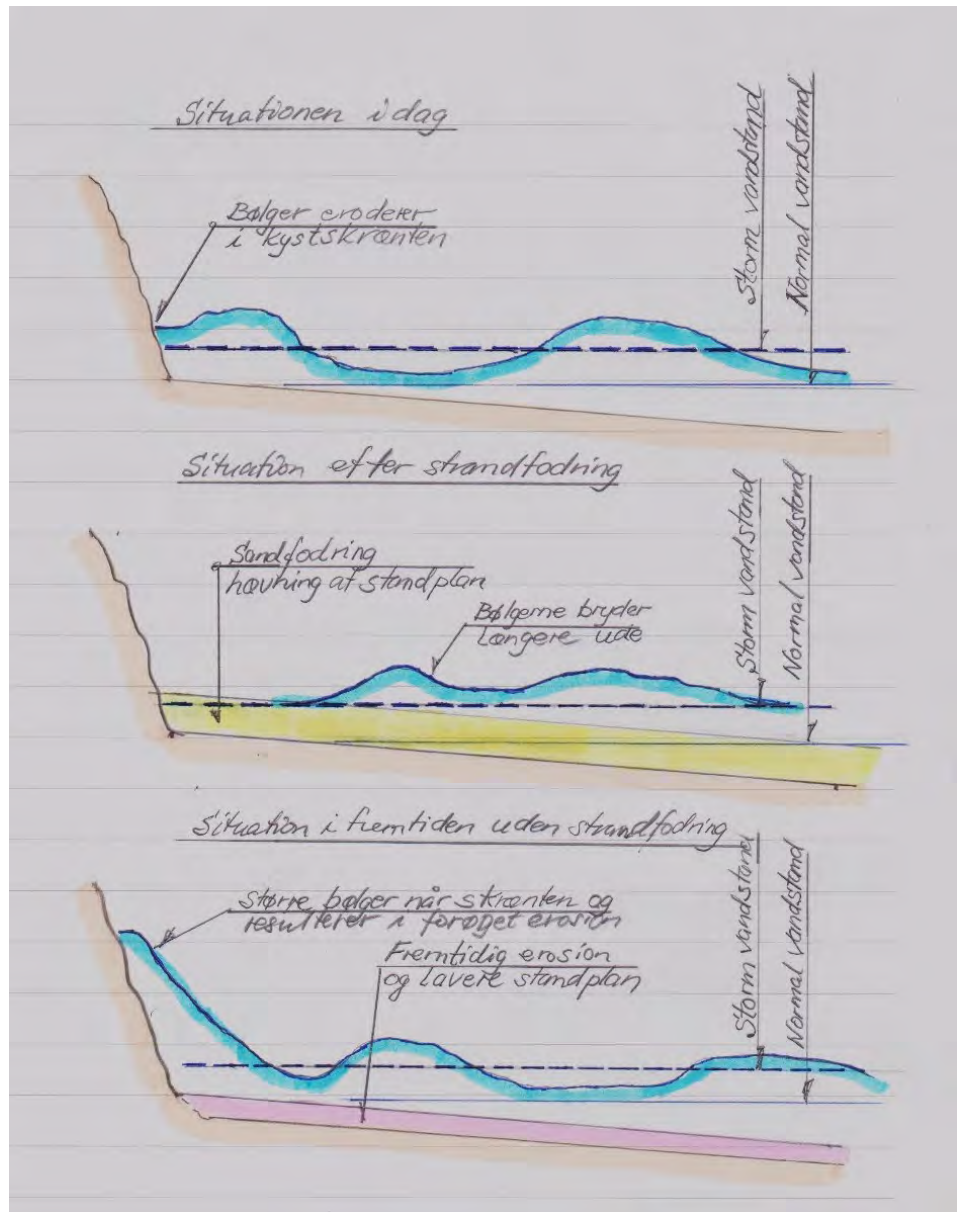 Situationen i dag
Bølger eroderer
i kystskrænten
Storm vandstand
Normal vandstand
Situation efter strandfodring
Sandfodring
hævning af standplan
Bølgerne bryder
længere ude
Storm vandstand
Normal vandstand
Situation i fremtiden uden strandfodring
Større bølger når skrænten og
resulterer i forøget erosion
Fremtidig erosion
og lavere standplan
Storm vandstand
Normal vandstand